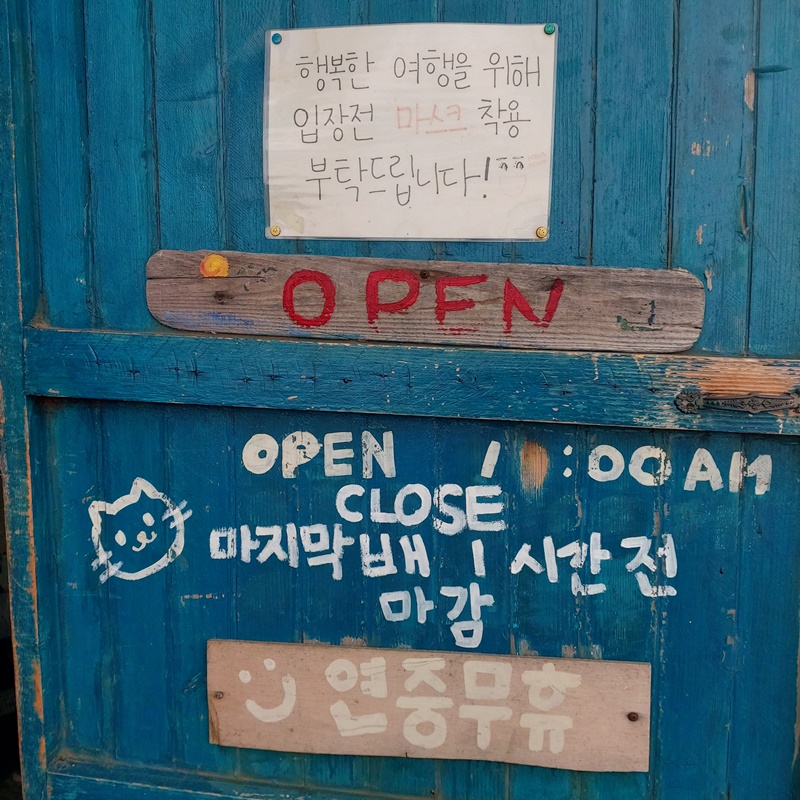 행복한 여행을 위해
입장전 마스크 착용
부탁드립니다!
OPEN
OPEN 1 :00 AM
CLOSE
마지막 배 1 시간 전
마감
연중무휴